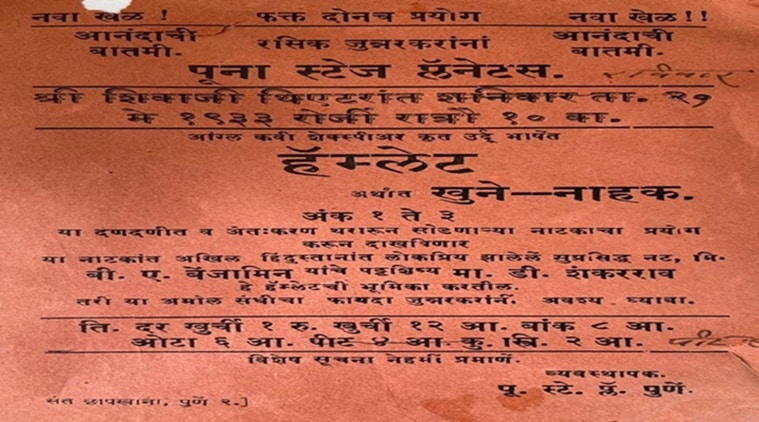 नवा खेळ ! फक्त दोनच प्रयोग नवा खेळ !!
आनंदाची बातमी. रसिक जुन्नरकरांनां आनंदाची बातमी.
पूना स्टेज प्लॅनेटस. रविवार
श्री शिवाजी थिएटरांत शनिवार ता. २७
मे १९३३ रोजीं रात्रौ १० वा.
आंग्ल कवी शेक्स्पीअर कृत उर्दू भाषेंत
हॅम्लेट
अर्थात खुने—नाहक.
अंक १ ते ३
या दणदणीत व अंतःकरण थरारून सोडणाऱ्या नाटकाचा प्रयोग
करून दाखविणार
या नाटकांत अखिल हिंदुस्तानांत लोकप्रिय झालेले सुप्रसिद्ध नट, मि.
बी. ए. बेंजामिन यांचे पट्टशिष्य मा. डी. शंकरराव
हे हॅम्लेटची भूमिका करतील.
तरी या अमोल संधीचा फायदा जुन्नरकरांनीं अवश्य घ्यावा.
ति. दर खुर्ची १ रु. खुर्ची १२ आ. बांक ८ आ.
ओटा ६ आ. पीट ४ आ. कु. स्त्रि. २ आ.
विशेष सूचना नेहमीं प्रमाणें.
व्यवस्थापक.
पू. स्टे. प्लॅ. पुणें.
संत छापखाना, पुणें २.]